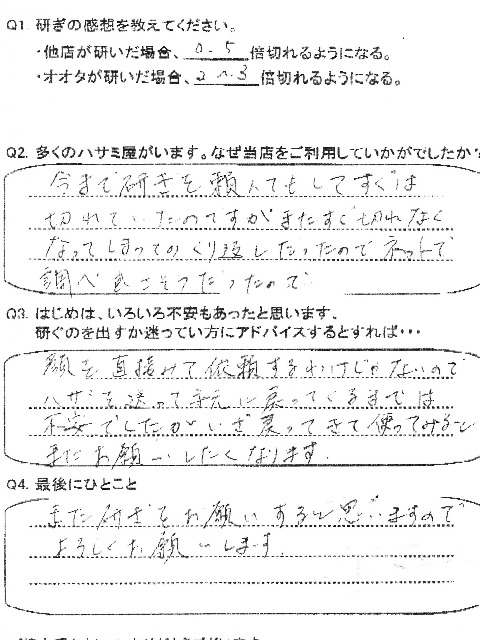 Q1. 研ぎの感想を教えてください。
・他店が研いだ場合、 0.5 倍切れるようになる。
・オオタが研いだ場合、 2~3 倍切れるようになる。
Q2. 多くのハサミ屋がいます。なぜ当店をご利用していかがでしたか?
今まで研ぎを頼んでもしてすぐは
切れていたのですがまたすぐ切れなく
なって 切ってのくり返しだったのでネットで
調べ良こそうだったので
Q3. はじめは、いろいろ不安もあったと思います。
研ぐのを出すか迷ってい方にアドバイスするとすれば・・・
顔を直接みて依頼するわけじゃないので
ハサミを送って手元に戻ってくるまでは
不安でしたがいざ戻ってきて使ってみると
またお願いしたくなります.
Q4. 最後にひとこと
また研ぎをお願いすると思いますので
よろしくお願いします.